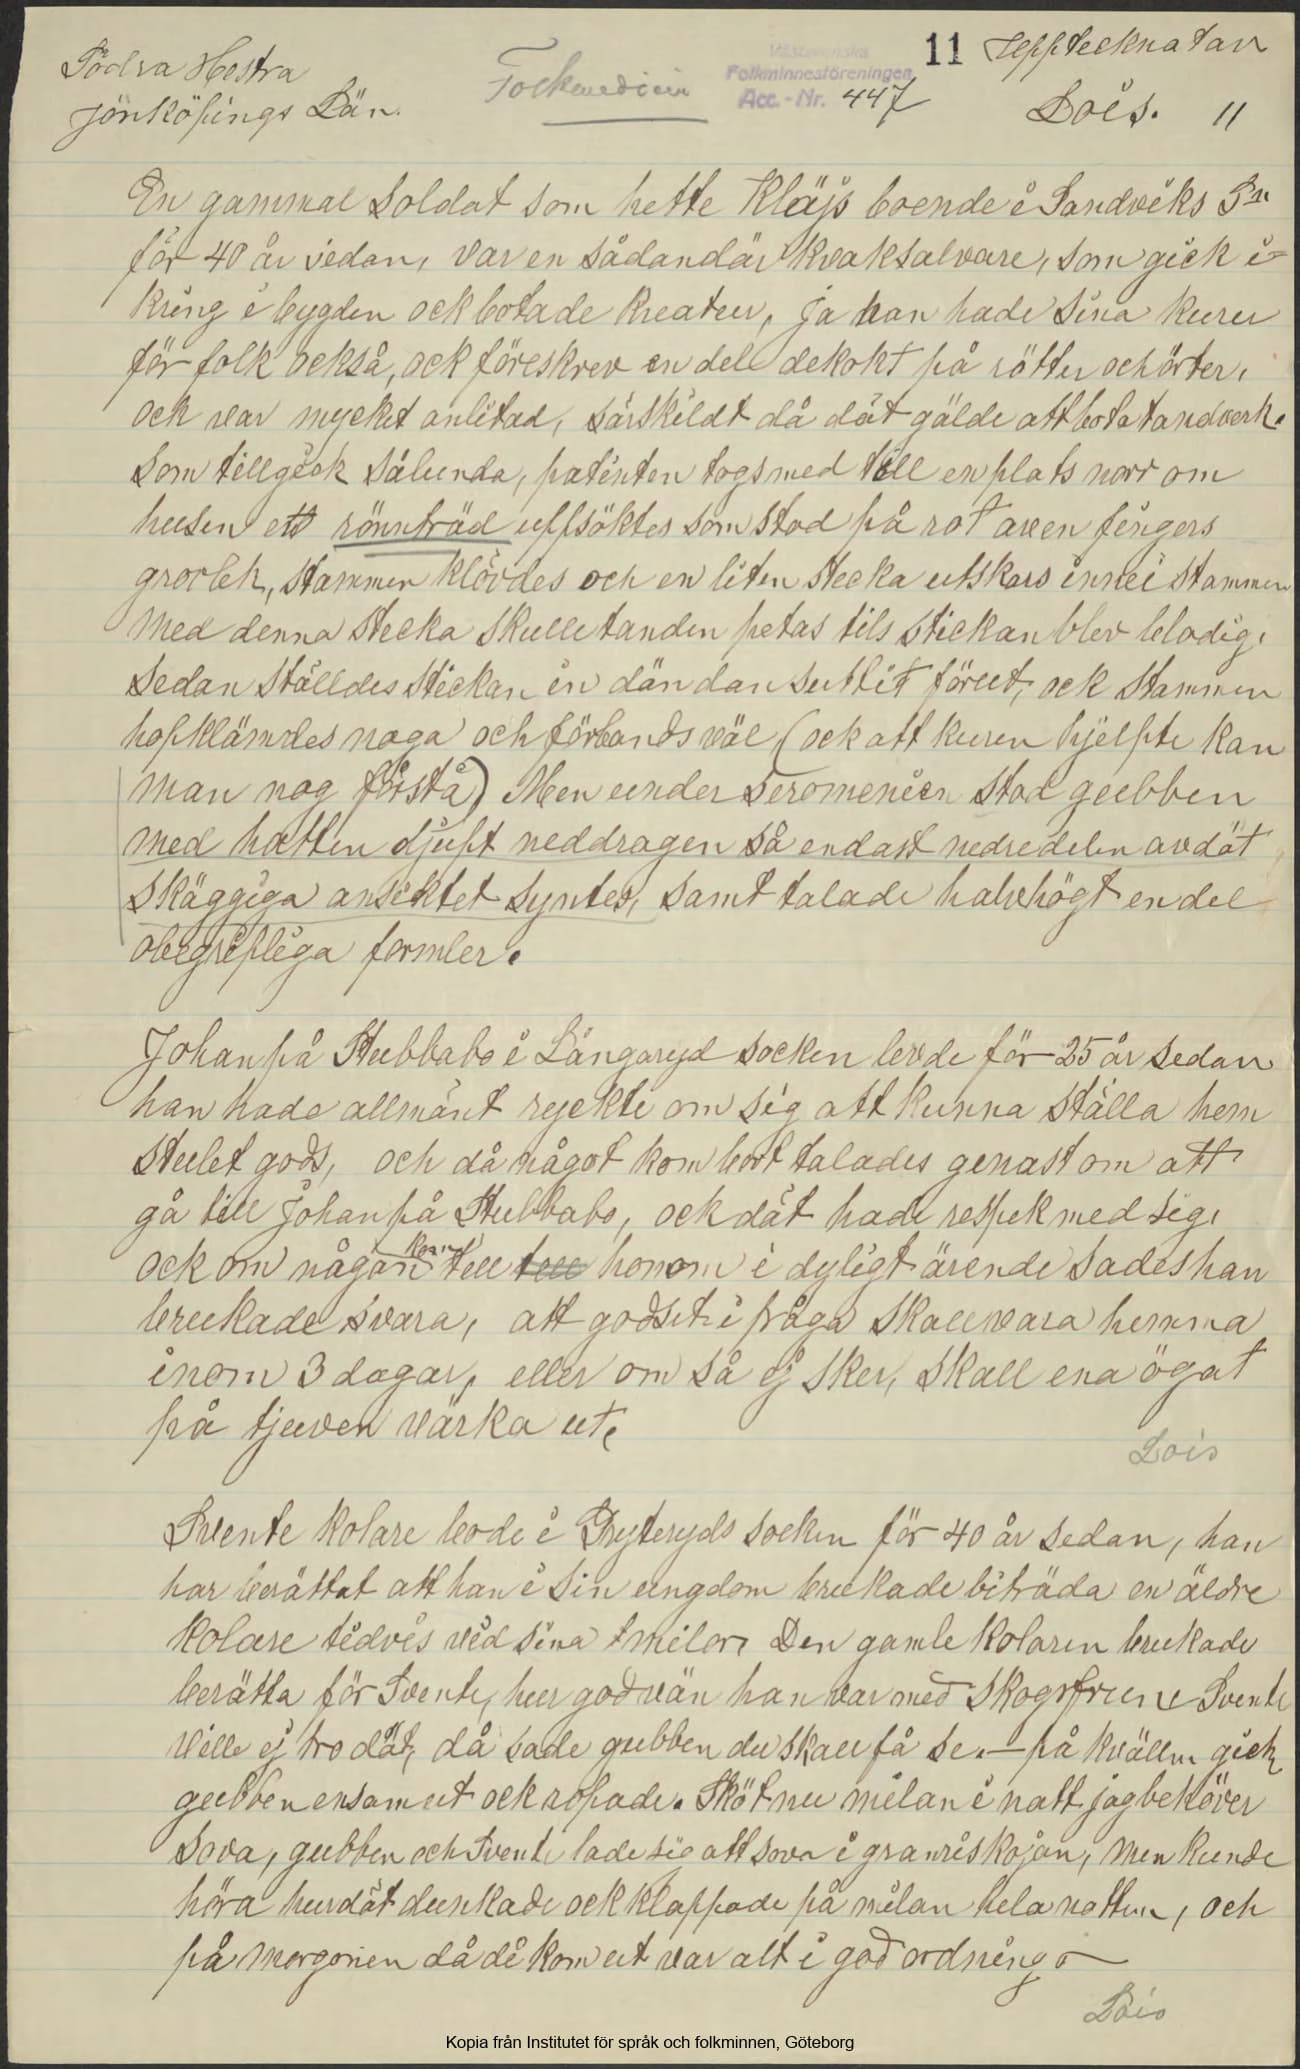 Södra Hestra
Jönköpings Län.
Folkmedicin
Västsvenska
Folkminnesföreningen
Acc.-Nr. 447
11 Upptecknat av
Lois. 11
En gammal soldat som hette Kläjs boende i Sandviks Sn
för 40 år sedan, var en sådandär kvaksalvare, som gick i-
kring i bygden ock botade kreatur, ja han hade sina kurer
för folk också, ock föreskrev en del dekokt på rötter och örter,
ock var mycket anlitad, särskildt då dät gälde att bota tandverk.
som tillgick sålunda, patienten togs med till en plats norr om
husen ett rönnträd uppsöktes som stod på rot av en fingers
grovlek, stammen klövdes och en liten stecka utskars inne i stammen
med denna stecka skulle tanden petas tils stickan blev blodig,
sedan ställdes stickan in där dan suttit förut, ock stammen
hopklämdes noga och förbands väl (ock att kuren hjelpte kan
man nog förstå) Men under seromenien stod gubben
med hatten djupt neddragen så endast nedredelen av dät
skäggiga ansiktet syntes, samt talade halvhögt en del
obegripliga formler.
Johan på Stubbabo i Långaryd socken levde för 25 år sedan
han hade allmänt ryckte om sig att kunna ställa hem
stulet gods, och då något kom bort talades genast om att
gå till Johan på Stubbabo, ock dät hade respek med sig,
ock om någon kom till till honom i dyligt ärende sades han
brukade svara, att godset i fråga skall vara hemma
inom 3 dagar, eller om så ej sker, skall ena ögat
på tjuven värka ut,
Lois
Svente kolare bode i Gryteryds socken för 40 år sedan, han
har berättat att han i sin ungdom brukade biträda en äldre
kolare tidvis vid sina milor, Den gamle kolaren brukade
berätta för Svente, hur god vän han var med skogsfrun, Svente
ville ej tro dät, då sade gubben du skall få se. — på kvällen gick
gubben ensam ut ock ropade. Sköt nu milan i natt jag behöver
sova, gubben och Svente lade sig att sova i granriskojan, men kunde
höra hur dät dunkade ock klappade på milan hela natten, och
på morgonen då di kom ut var alt i god ordning —
Lois
Kopia från Institutet för språk och folkminnen, Göteborg